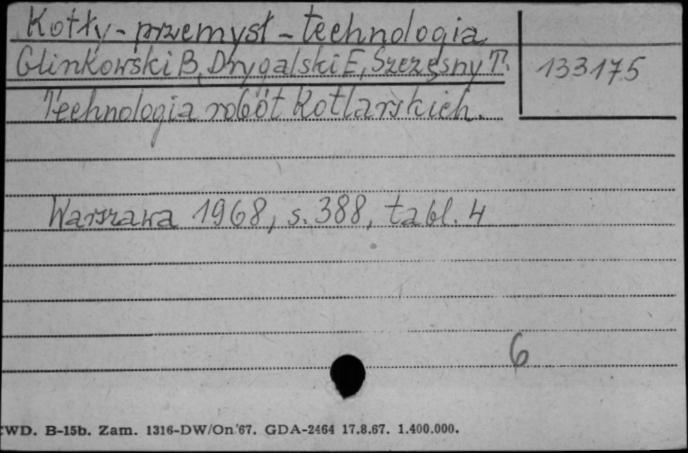 Kotły - przemysł - technologia
Glinkowski B, Drygalski E, Szczęsny T. 133175
Technologia robót Kotlarskich.
Warszawa 1968, s. 388, tabl. 4
6
CWD. B-15b. Zam. 1316-DW/On/67. GDA-2464 17.8.67. 1.400.000.